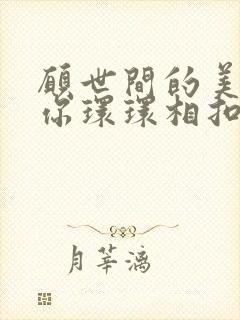 愿世間的美
你環環相扣
月莘漓